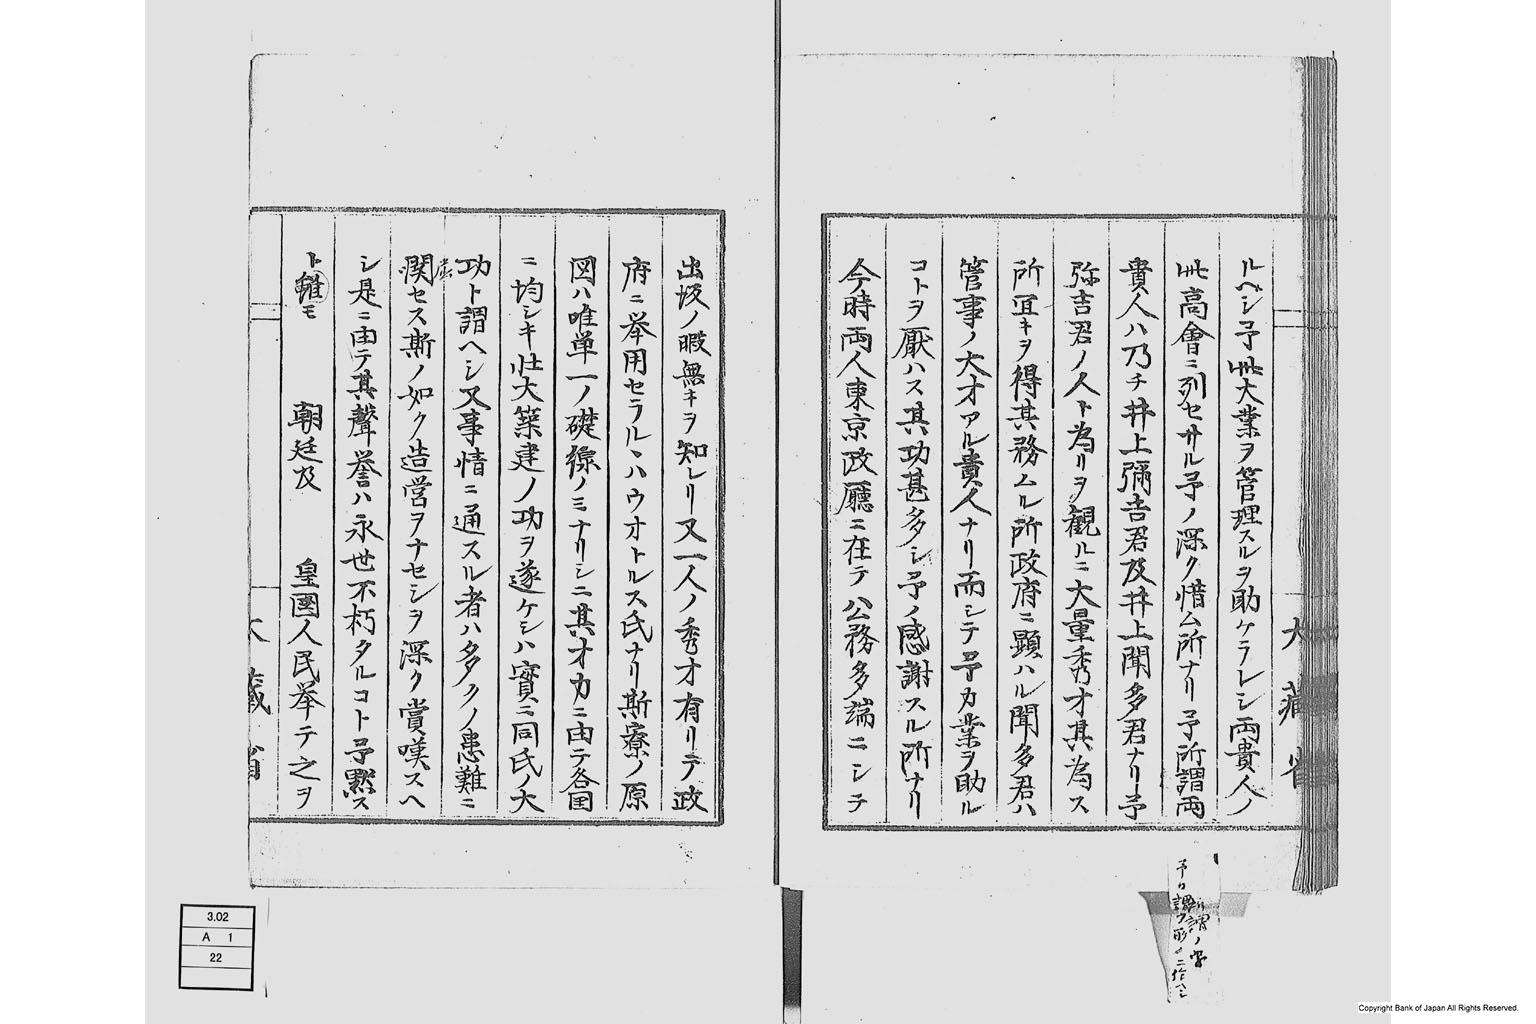 ルヘシ予此大業ヲ管理スルヲ助ケラレシ両貴人ノ
此高會ニ列セサル予ノ深ク惜ム所ナリ予所謂両
貴人ハ乃チ井上彌吉君及井上聞多君ナリ予
弥吉君ノ人ト為リヲ観ルニ大量秀才其為ス
所冝キヲ得其務ムル所政府ニ顕ハル聞多君ハ
管事ノ大才アル貴人ナリ而シテ予カ業ヲ助ル
コトヲ厭ハス其功甚多シ予ノ感謝スル所ナリ
今時両人東京政廳ニ在テ公務多端ニシテ
大藏省
出坂ノ暇無キヲ知レリ又一人ノ秀才有リテ政
府ニ挙用セラルヽハウオトルス氏ナリ斯寮ノ原
図ハ唯単一ノ礎線ノミナリシニ其才力ニ由テ各国
ニ均シキ壮大築建ノ功ヲ遂ケシハ實ニ同氏ノ大
功ト謂ヘシ又事情ニ通スル者ハ多クノ患難ニ
関セス斯ノ如ク造営ヲナセシヲ深ク賞嘆スヘ
シ是ニ由テ其聲誉ハ永世不朽タルコト予黙ス
ト雖モ 朝廷及 皇國人民挙テ之ヲ
大藏省
所謂ノ字
3.02
A 1
22
Copyright Bank of Japan All Rights Reserved.